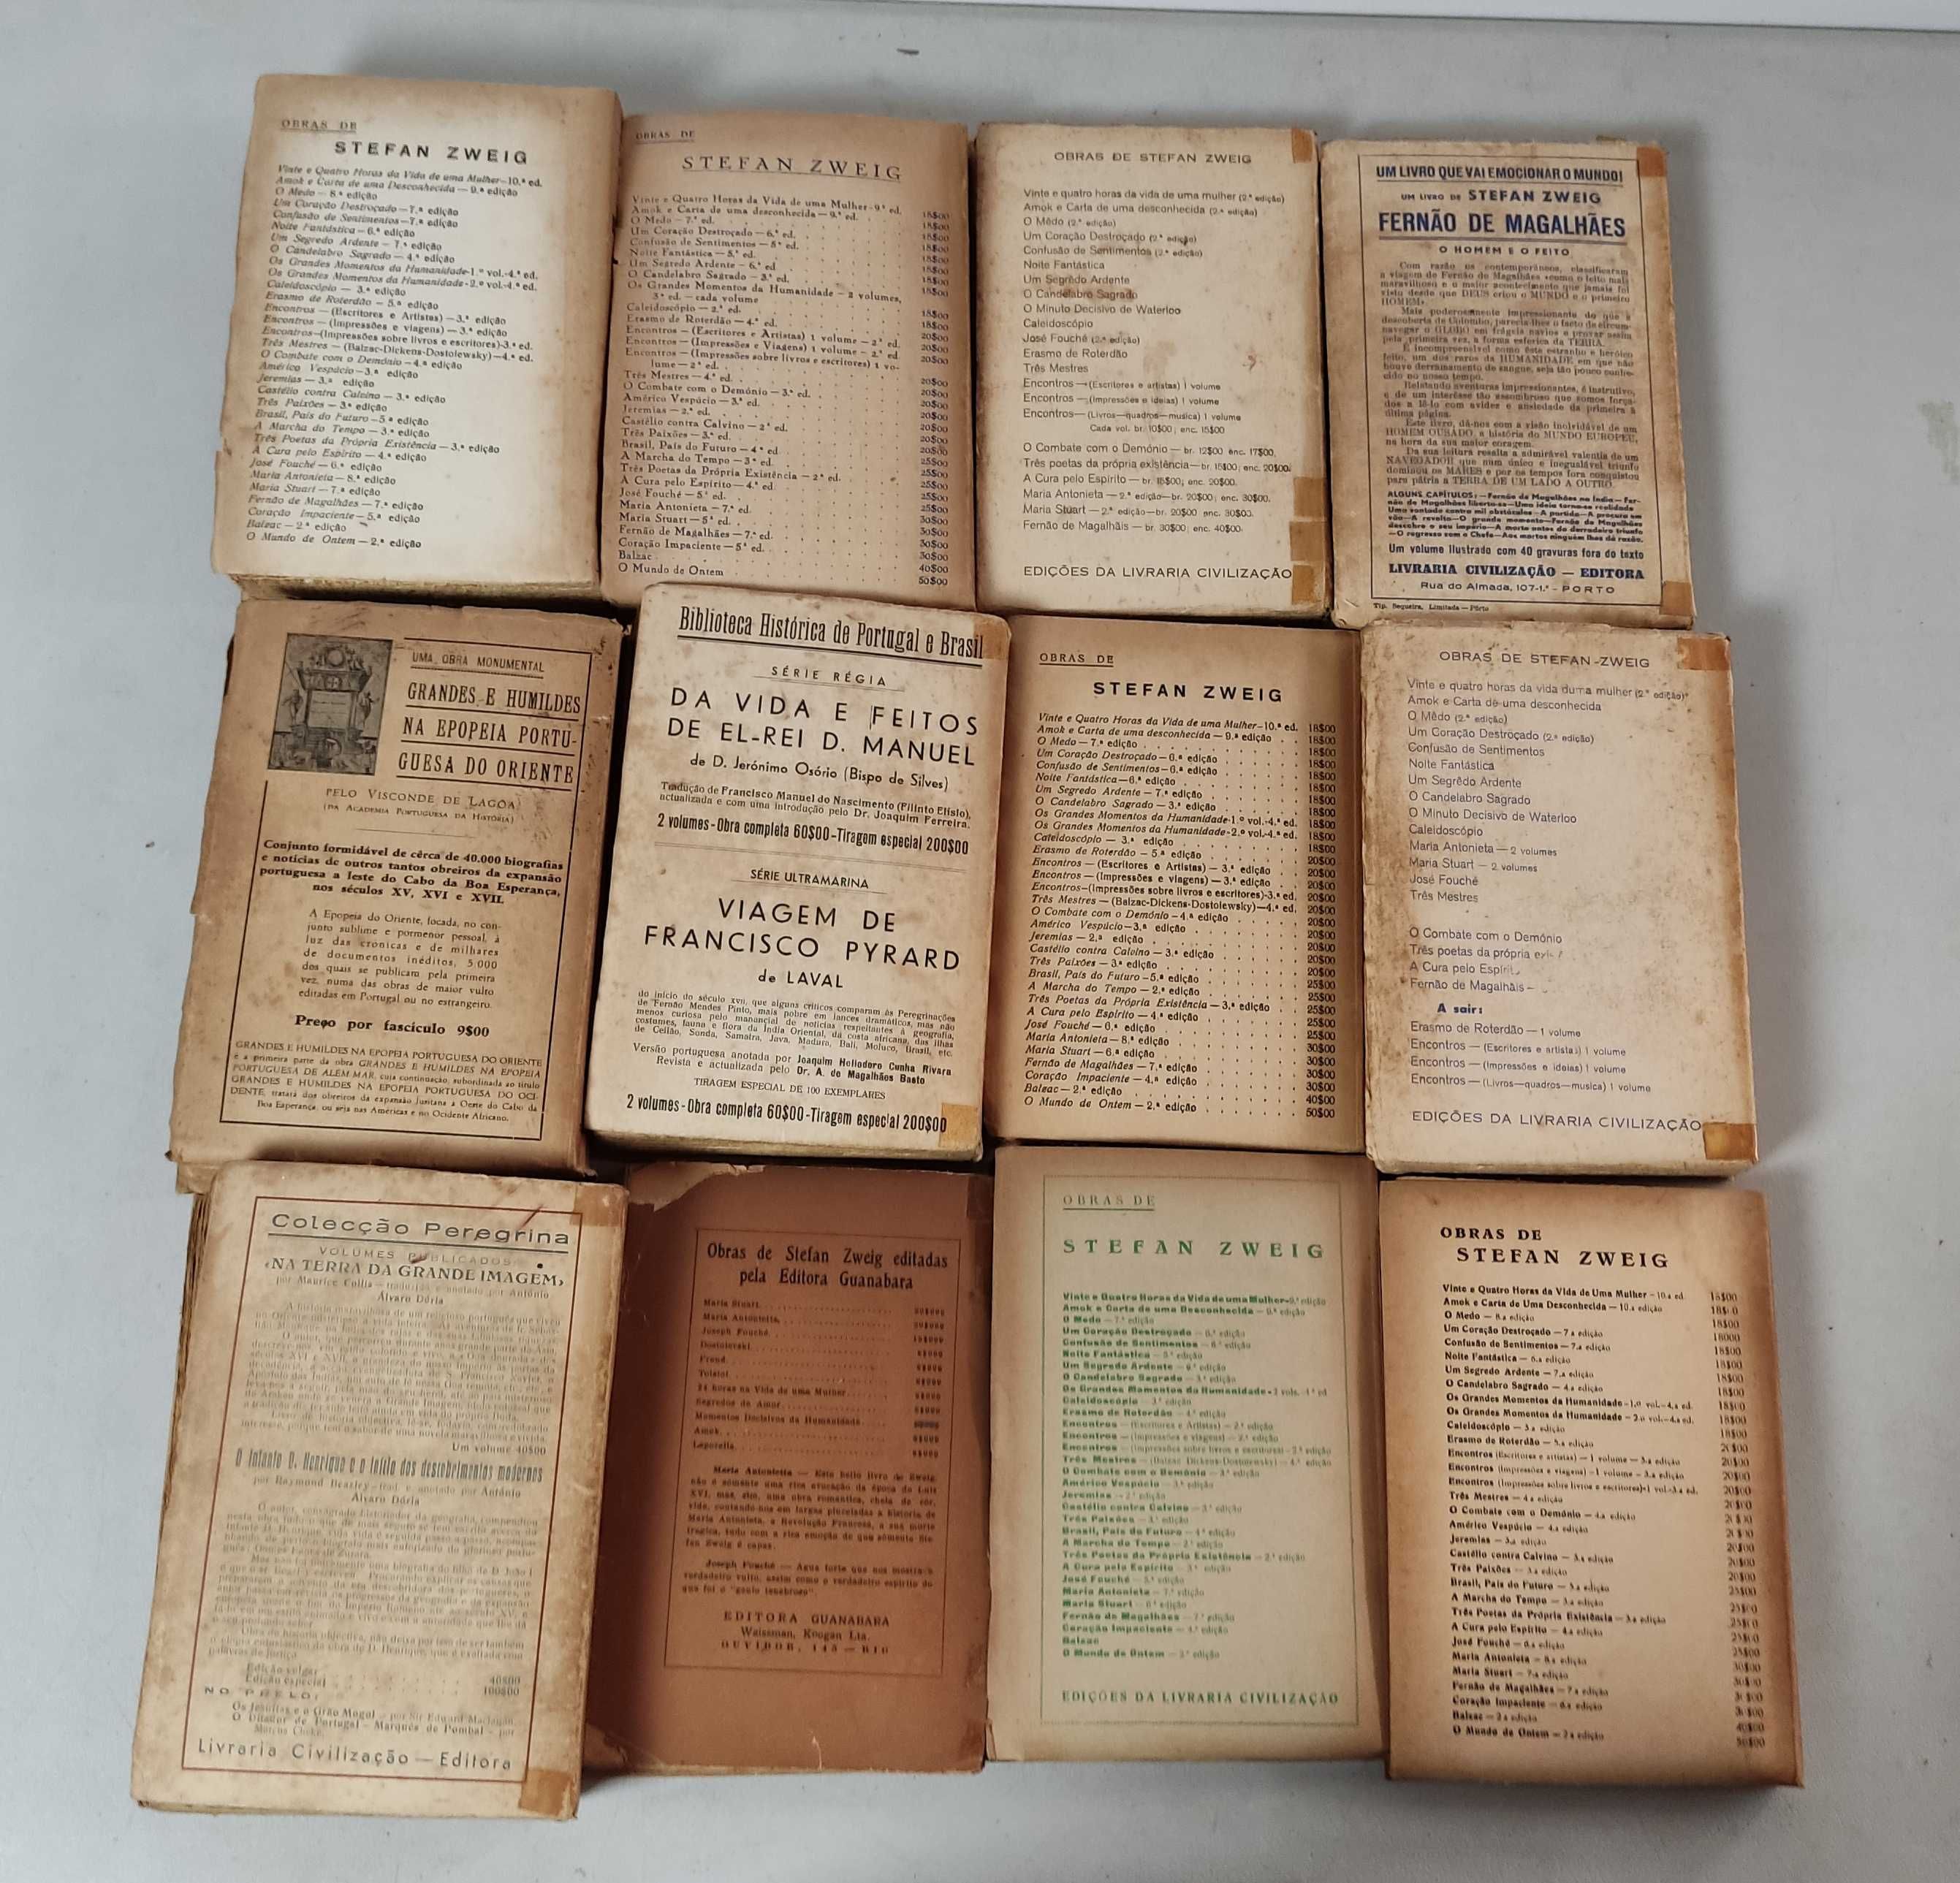 OBRAS DE
STEFAN ZWEIG
Vinte e Quatro Horas da Vida de uma Mulher—10.ª ed.
Amok e Carta de uma Desconhecida — 9.ª edição
O Medo — 8.ª edição
Um Coração Destroçado — 7.ª edição
Confusão de Sentimentos — 7.ª edição
Noite Fantástica — 6.ª edição
Um Segredo Ardente — 7.ª edição
O Candelabro Sagrado — 4.ª edição
Os Grandes Momentos da Humanidade-1.º vol.-4.ª ed.
Os Grandes Momentos da Humanidade-2.º vol.-4.ª ed.
Caleidoscópio — 3.ª edição
Erasmo de Roterdão — 5.ª edição
Encontros — (Escritores e Artistas) — 3.ª edição
Encontros — (Impressões e viagens) — 3.ª edição
Encontros—(Impressões sobre livros e escritores)-3.ª ed.
Três Mestres — (Balzac-Dickens-Dostolewsky) —4.ª ed.
O Combate com o Demónio —4.ª edição
Américo Vespúcio —3.ª edição
Jeremias — 3.ª edição
Castélio contra Calvino — 3.ª edição
Três Paixões — 3.ª edição
Brasil, País do Futuro — 5.ª edição
A Marcha do Tempo — 3.ª edição
Três Poetas da Própria Existência — 3.ª edição
A Cura pelo Espírito — 4.ª edição
José Fouché — 6.ª edição
Maria Antonieta — 8.ª edição
Maria Stuart — 7.ª edição
Fernão de Magalhães — 7.ª edição
Coração Impaciente — 5.ª edição
Balzac — 2.ª edição
O Mundo de Ontem — 2.ª edição
OBRAS DE
STEFAN ZWEIG
Vinte e Quatro Horas da Vida de uma Mulher-9.ª ed. 18$00
Amok e Carta de uma desconhecida — 9.ª ed. 18$00
O Medo — 7.ª ed. 18$00
Um Coração Destroçado — 6.ª ed. 18$00
Confusão de Sentimentos — 5.ª ed. 18$00
Noite Fantástica — 5.ª ed. 18$00
Um Segredo Ardente — 6.ª ed. 18$00
O Candelabro Sagrado — 3.ª ed. 18$00
Os Grandes Momentos da Humanidade — 2 volumes,
3.ª ed. — cada volume 18$00
Caleidoscópio — 2.ª ed. 18$00
Erasmo de Roterdão — 4.ª ed. 20$00
Encontros — (Escritores e Artistas) 1 volume — 2.ª ed. 20$00
Encontros — (Impressões e Viagens) 1 volume — 2.ª ed. 20$00
Encontros — (Impressões sobre livros e escritores) 1 vo-
lume — 2.ª ed. 20$00
Três Mestres — 4.ª ed. 20$00
O Combate com o Demónio — 3.ª ed. 20$00
Américo Vespúcio — 3.ª ed. 20$00
Jeremias — 2.ª ed. 20$00
Castélio contra Calvino — 2.ª ed. 20$00
Três Paixões — 3.ª ed. 20$00
Brasil, País do Futuro — 4.ª ed. 25$00
A Marcha do Tempo — 3.ª ed. 25$00
Três Poetas da Própria Existência — 2.ª ed. 25$00
A Cura pelo Espírito — 4.ª ed. 25$00
José Fouché — 5.ª ed. 25$00
Maria Antonieta — 7.ª ed. 30$00
Maria Stuart — 5.ª ed. 30$00
Fernão de Magalhães — 7.ª ed. 30$00
Coração Impaciente — 5.ª ed. 30$00
Balzac 40$00
O Mundo de Ontem 50$00
OBRAS DE STEFAN ZWEIG
Vinte e quatro horas da vida de uma mulher (2.ª edição)
Amok e Carta de uma desconhecida (2.ª edição)
O Mêdo (2.ª edição)
Um Coração Destroçado (2.ª edição)
Confusão de Sentimentos (2.ª edição)
Noite Fantástica
Um Segrêdo Ardente
O Candelabro Sagrado
O Minuto Decisivo de Waterloo
Caleidoscópio
José Fouché (2.ª edição)
Erasmo de Roterdão
Três Mestres
Encontros—(Escritores e artistas) 1 volume
Encontros —(Impressões e ideias) 1 volume
Encontros— (Livros—quadros—musica) 1 volume
Cada vol. br. 10$00; enc. 15$00
O Combate com o Demónio — br. 12$00 enc. 17$00.
Três poetas da própria existência—br. 15$00; enc. 20$00.
A Cura pelo Espírito — br. 15$00; enc. 20$00.
Maria Antonieta — 2.ª edição—br. 20$00; enc. 30$00.
Maria Stuart — 2.ª edição—br. 20$00 enc. 30$00.
Fernão de Magalhãis — br. 30$00; enc. 40$00.
EDIÇÕES DA LIVRARIA CIVILIZAÇÃO
UM LIVRO QUE VAI EMOCIONAR O MUNDO!
UM LIVRO DE STEFAN ZWEIG
FERNÃO DE MAGALHÃES
O HOMEM E O FEITO
Com razão os contemporâneos, classificaram
a viagem de Fernão de Magalhães «como o feito mais
maravilhoso e o maior acontecimento que jamais foi
visto desde que DEUS criou o MUNDO e o primeiro
HOMEM».
Mais poderosamente impressionante do que a
descoberta de Colombo, parecia-lhes o facto de circum-
navegar o GLOBO em frágeis navios e provar assim
pela primeira vez, a forma esférica da TERRA.
É incompreensível como êste estranho e heróico
feito, um dos raros da HUMANIDADE em que não
houve derramamento de sangue, seja tão pouco conhe-
cido no nosso tempo.
Relatando aventuras impressionantes, é instrutivo,
e de um interêsse tão assombroso que somos força-
dos a lê-lo com avidez e ansiedade da primeira à
última página.
Êste livro, dá-nos com a visão inolvidável de um
HOMEM OUSADO, a história do MUNDO EUROPEU,
na hora da sua maior coragem.
Da sua leitura resalta a admirável valentia de um
NAVEGADOR que num único e inegualável triunfo
dominou os MARES e por os tempos fora conquistou
para pátria a TERRA DE UM LADO A OUTRO.
ALGUNS CAPÍTULOS: — Fernão de Magalhães na Índia — Fer-
não de Magalhães liberta-se—Uma ideia torna-se realidade
Uma vontade contra mil obstáculos—A partida—A procura em
vão—A revolta—O grande momento—Fernão de Magalhães
descobre o seu império—A morte antes do derradeiro triunfo
—O regresso sem o Chefe—Aos mortos ninguém lhes dá razão.
Um volume ilustrado com 40 gravuras fora do texto
LIVRARIA CIVILIZAÇÃO — EDITORA
Rua do Almada, 107-1.º - PORTO
Tip. Sequeira, Limitada — Pôrto
UMA OBRA MONUMENTAL
GRANDES E HUMILDES
NA EPOPEIA PORTU-
GUESA DO ORIENTE
PELO VISCONDE DE LAGOA
(DA ACADEMIA PORTUGUESA DA HISTÓRIA)
Conjunto formidável de cêrca de 40.000 biografias
e notícias de outros tantos obreiros da expansão
portuguesa a leste do Cabo da Boa Esperança,
nos séculos XV, XVI e XVII.
A Epopeia do Oriente, focada, no con-
junto sublime e pormenor pessoal, à
luz das crónicas e de milhares
de documentos inéditos, 5.000
dos quais se publicam pela primeira
vez, numa das obras de maior vulto
editadas em Portugal ou no estrangeiro.
Preço por fascículo 9$00
GRANDES E HUMILDES NA EPOPEIA PORTUGUESA DO ORIENTE
é a primeira parte da obra GRANDES E HUMILDES NA EPOPEIA
PORTUGUESA DE ALÉM MAR, cuja continuação, subordinada ao título
GRANDES E HUMILDES NA EPOPEIA PORTUGUESA DO OCI-
DENTE, tratará dos obreiros da expansão lusitana a Oeste do Cabo da
Boa Esperança, ou seja nas Américas e no Ocidente Africano.
Biblioteca Histórica de Portugal e Brasil
SÉRIE RÉGIA
DA VIDA E FEITOS
DE EL-REI D. MANUEL
de D. Jerónimo Osório (Bispo de Silves)
Tradução de Francisco Manuel do Nascimento (Filinto Elísio),
actualizada e com uma introdução pelo Dr. Joaquim Ferreira.
2 volumes-Obra completa 60$00-Tiragem especial 200$00
SÉRIE ULTRAMARINA
VIAGEM DE
FRANCISCO PYRARD
de LAVAL
do início do século XVII, que alguns críticos comparam às Peregrinações
de Fernão Mendes Pinto, mais pobre em lances dramáticos, mas não
menos curiosa pelo manancial de notícias respeitantes à geografia,
costumes, fauna e flora da Índia Oriental, da costa africana, das ilhas
de Ceilão, Sonda, Samatra, Java, Madura, Bali, Moluco, Brasil, etc.
Versão portuguesa anotada por Joaquim Heliodoro Cunha Rivara
Revista e actualizada pelo Dr. A. de Magalhães Basto
TIRAGEM ESPECIAL DE 100 EXEMPLARES
2 volumes-Obra completa 60$00-Tiragem especial 200$00
OBRAS DE
STEFAN ZWEIG
Vinte e Quatro Horas da Vida de uma Mulher-10.ª ed. 18$00
Amok e Carta de uma desconhecida — 9.ª edição 18$00
O Medo — 7.ª edição 18$00
Um Coração Destroçado — 6.ª edição 18$00
Confusão de Sentimentos—6.ª edição 18$00
Noite Fantástica—6.ª edição 18$00
Um Segredo Ardente — 7.ª edição 18$00
O Candelabro Sagrado — 3.ª edição 18$00
Os Grandes Momentos da Humanidade-1.º vol.-4.ª ed. 18$00
Os Grandes Momentos da Humanidade-2.º vol.-4.ª ed. 18$00
Caleidoscópio — 3.ª edição 18$00
Erasmo de Roterdão — 5.ª edição 20$00
Encontros — (Escritores e Artistas) — 3.ª edição 20$00
Encontros — (Impressões e viagens) — 3.ª edição 20$00
Encontros—(Impressões sobre livros e escritores)-3.ª ed. 20$00
Três Mestres — (Balzac-Dickens-Dostolewsky)—4.ª ed. 20$00
O Combate com o Demónio -4.ª edição 20$00
Américo Vespúcio—3.ª edição 20$00
Jeremias — 2.ª edição 20$00
Castélio contra Calvino — 3.ª edição 20$00
Três Paixões — 3.ª edição 20$00
Brasil, País do Futuro —5.ª edição 25$00
A Marcha do Tempo — 2.ª edição 25$00
Três Poetas da Própria Existência — 3.ª edição 25$00
A Cura pelo Espírito — 4.ª edição 25$00
José Fouché — 6.ª edição 25$00
Maria Antonieta — 8.ª edição 30$00
Maria Stuart — 6.ª edição 30$00
Fernão de Magalhães — 7.ª edição 30$00
Coração Impaciente — 4.ª edição 30$00
Balzac — 2.ª edição 40$00
O Mundo de Ontem — 2.ª edição 50$00
OBRAS DE STEFAN ZWEIG
Vinte e quatro horas da vida duma mulher (2.ª edição)
Amok e Carta de uma desconhecida
O Mêdo (2.ª edição)
Um Coração Destroçado (2.ª edição)
Confusão de Sentimentos
Noite Fantástica
Um Segrêdo Ardente
O Candelabro Sagrado
O Minuto Decisivo de Waterloo
Caleidoscópio
Maria Antonieta — 2 volumes
Maria Stuart — 2 volumes
José Fouché
Três Mestres
O Combate com o Demónio
Três poetas da própria
A Cura pelo Espírit
Fernão de Magalhãis —
A sair:
Erasmo de Roterdão — 1 volume
Encontros — (Escritores e artistas) 1 volume
Encontros — (Impressões e ideias) 1 volume
Encontros — (Livros—quadros—musica) 1 volume
EDIÇÕES DA LIVRARIA CIVILIZAÇÃO
Colecção Peregrina
VOLUMES PUBLICADOS
«NA TERRA DA GRANDE IMAGEM»
por Maurice Collis — traduzido e anotado por António
Álvaro Dória
Um volume 40$00
O Infante D. Henrique e o início dos descobrimentos modernos
por Raymond Beazley — trad. e anotado por António
Álvaro Dória
Edição vulgar 40$00
Edição especial 100$00
NO PRELO:
Os Jesuítas e o Grão Mogol — por Sir Eduard Maclagan
O Ditador de Portugal — Marquês de Pombal — por
Marcus Cheke
Livraria Civilização — Editora
Obras de Stefan Zweig editadas
pela Editora Guanabara
Maria Stuart
Maria Antonietta
Joseph Fouché
Dostoievski
Freud
Tolstoi
24 horas na Vida de uma Mulher
Segredos de Amor
Momentos Decisivos da Humanidade
Amok
Leporella
Maria Antonietta — Este bello livro de Zweig
não é sómente uma rica evocação da época de Luis
XVI, mas, sim, uma obra romantica, cheia de côr,
vida, contando-nos em largas pinceladas a historia de
Maria Antonietta, a Revolução Franceza, a sua morte
tragica, tudo com a rica emoção de que sómente Ste-
fan Zweig é capaz.
Joseph Fouché — Agua forte que nos mostra o
verdadeiro vulto, assim como o verdadeiro espirito do
que foi o "genio tenebroso".
EDITORA GUANABARA
Waissman, Koogan Lta.
OUVIDOR, 145 — RIO
OBRAS DE
STEFAN ZWEIG
Vinte e Quatro Horas da Vida de uma Mulher-9.ª edição
Amok e Carta de uma Desconhecida — 9.ª edição
O Medo — 7.ª edição
Um Coração Destroçado — 6.ª edição
Confusão de Sentimentos — 6.ª edição
Noite Fantástica — 5.ª edição
Um Segredo Ardente — 6.ª edição
O Candelabro Sagrado — 3.ª edição
Os Grandes Momentos da Humanidade - 2 vols. -4.ª ed
Caleidoscópio — 3.ª edição
Erasmo de Roterdão — 4.ª edição
Encontros — (Escritores e Artistas) — 2.ª edição
Encontros — (Impressões e viagens) — 2.ª edição
Encontros — (Impressões sobre livros e escritores) - 2.ª edição
Três Mestres — (Balzac Dickens-Dostolewsky) — 4.ª edição
O Combate com o Demónio — 3.ª edição
Américo Vespúcio — 3.ª edição
Jeremias — 2.ª edição
Castélio contra Calvino — 3.ª edição
Três Paixões — 3.ª edição
Brasil, País do Futuro — 4.ª edição
A Marcha do Tempo — 2.ª edição
Três Poetas da Própria Existência — 2.ª edição
A Cura pelo Espírito — 3.ª edição
José Fouché — 5.ª edição
Maria Antonieta — 7.ª edição
Maria Stuart — 6.ª edição
Fernão de Magalhães — 7.ª edição
Coração Impaciente — 4.ª edição
Balzac
O Mundo de Ontem — 2.ª edição
EDIÇÕES DA LIVRARIA CIVILIZAÇÃO
OBRAS DE
STEFAN ZWEIG
Vinte e Quatro Horas da Vida de Uma Mulher – 10.a ed. 18$00
Amok e Carta de Uma Desconhecida — 10.a edição 18$00
O Medo — 8.a edição 18$00
Um Coração Destroçado — 7.a edição 18$00
Confusão de Sentimentos — 7.a edição 18$00
Noite Fantástica — 6.a edição 18$00
Um Segredo Ardente — 7.a edição 18$00
O Candelabro Sagrado — 4.a edição 18$00
Os Grandes Momentos da Humanidade -1.o vol.-4.a ed. 18$00
Os Grandes Momentos da Humanidade - 2.o vol.-4.a ed. 18$00
Caleidoscópio — 3.a edição 18$00
Erasmo de Roterdão — 5.a edição 20$00
Encontros (Escritores e artistas) — 1 volume — 3.a edição 20$00
Encontros (Impressões e viagens) -1 volume — 3.a edição 20$00
Encontros (Impressões sobre livros e escritores)-1 vol.-3.a ed. 20$00
Três Mestres — 4.a edição 20$00
O Combate com o Demónio — 4.a edição 20$00
Américo Vespúcio — 4.a edição 20$00
Jeremias — 3.a edição 20$00
Castélio contra Calvino — 3.a edição 20$00
Três Paixões — 3.a edição 20$00
Brasil, País do Futuro — 5.a edição 25$00
A Marcha do Tempo — 3.a edição 25$00
Três Poetas da Própria Existência — 3.a edição 25$00
A Cura pelo Espírito — 4.a edição 25$00
José Fouché — 6.a edição 25$00
Maria Antonieta — 8.a edição 30$00
Maria Stuart — 7.a edição 30$00
Fernão de Magalhães — 7.a edição 30$00
Coração Impaciente — 6.a edição 30$00
Balzac — 2.a edição 40$00
O Mundo de Ontem — 2.a edição 50$00